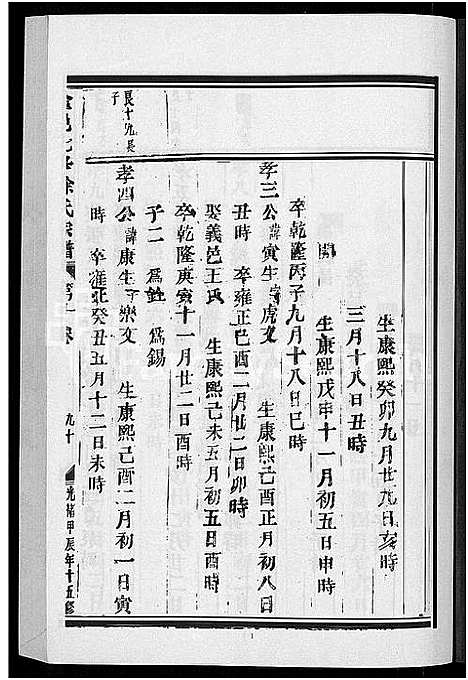 生康熙癸卯九月廿九日亥時
三月十八日丑時
生康熙戊申十一月初五日申時
卒乾隆丙子九月十八日巳時
孝三公諱寅生字虎文 生康熙己酉正月初八日
丑時 卒雍正己酉二月廿二日卯時
娶義邑王氏 生康熙己未五月初五日酉時
卒乾隆庚寅十一月廿二日酉時
子二 為銓 為錫
長十九長
子
孝四公諱康生字樂文 生康熙己酉二月初一日寅
時 卒雍正癸丑五月十二日未時
徐氏宗譜 第十卷 九十 光緒甲辰年十五修